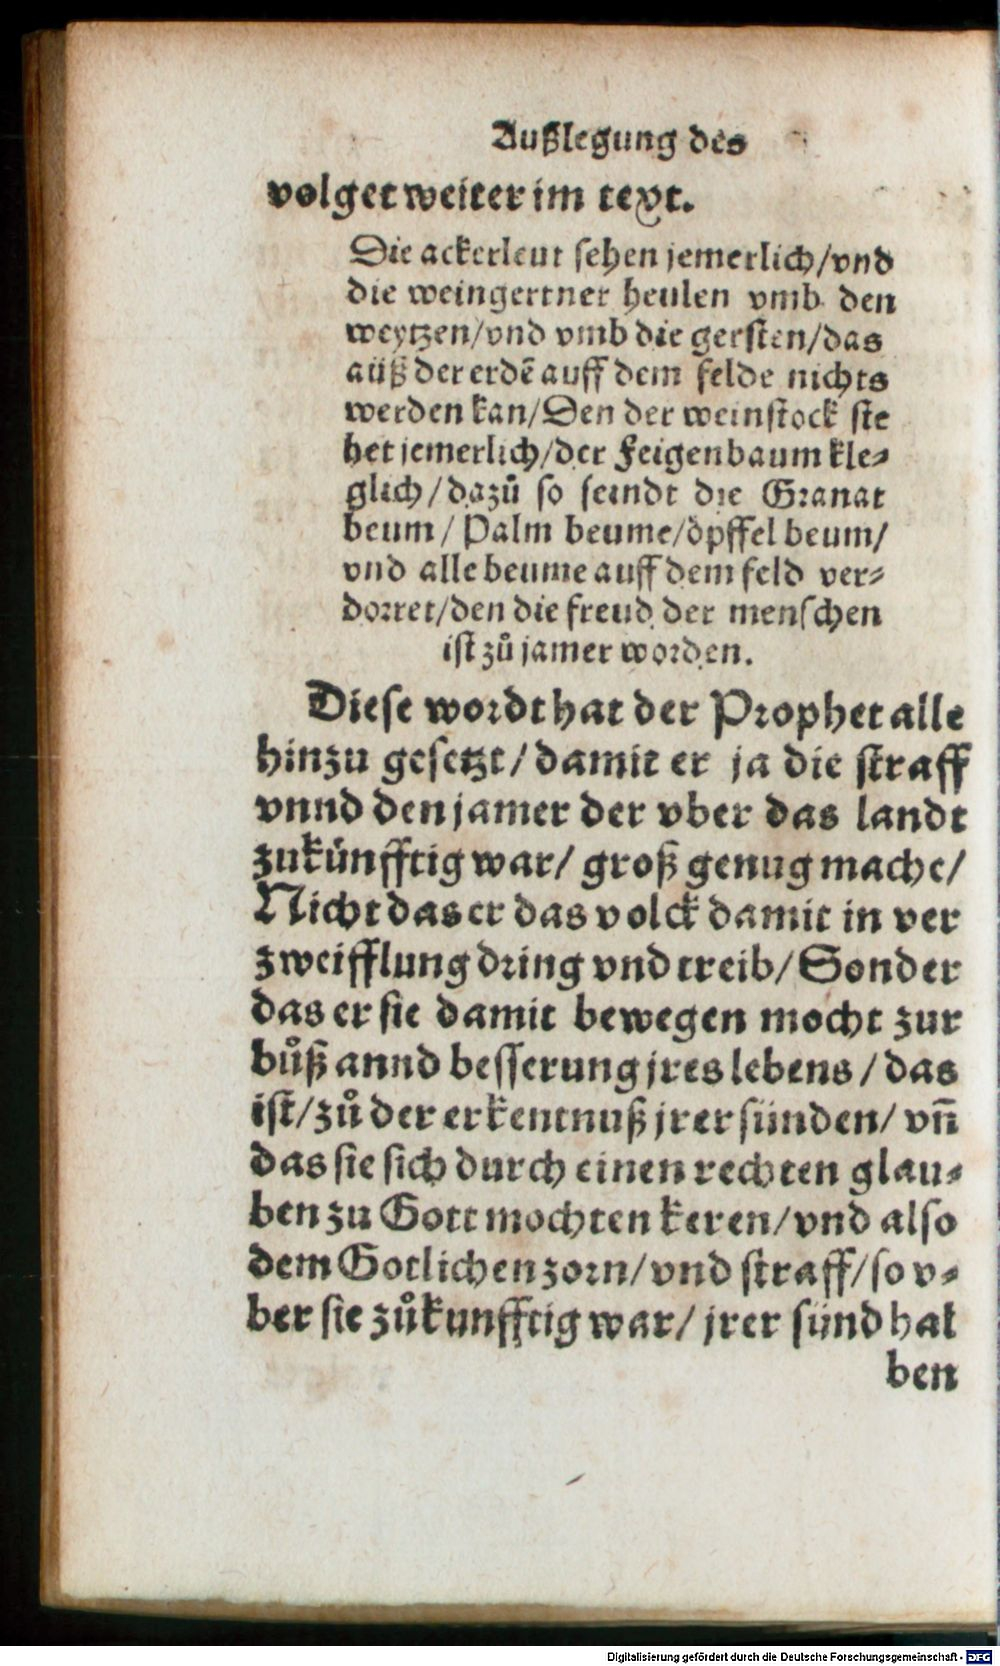 Außlegung des
volget weiter im text.
Die ackerleut sehen jemerlich/vnd
die weingertner heulen vmb den
weytzen/vnd vmb die gersten/das
aüß der erdē auff dem felde nichts
werden kan/Den der weinstock ste
het jemerlich/der Feigenbaum kle⸗
glich/dazů so seindt die Granat
beum/Palm beume/öpffel beum/
vnd alle beume auff dem feld ver⸗
dorret/den die freud der menschen
ist zů jamer worden.
Diese wordt hat der Prophet alle
hinzu gesetzt/damit er ja die straff
vnnd den jamer der vber das landt
zukünfftig war/groß genug mache/
Nicht das er das volck damit in ver
zweifflung dring vnd treib/Sonder
das er sie damit bewegen mocht zur
bůß annd besserung jres lebens/das
ist/zů der erkentnuß jrer sünden/vn̄
das sie sich durch einen rechten glau⸗
ben zu Gott mochten keren/vnd also
dem Gotlichen zorn/vnd straff/so v⸗
ber sie zůkunfftig war/jrer sünd hal
ben
Digitalisierung gefördert durch die Deutsche Forschungsgemeinschaft - DFG